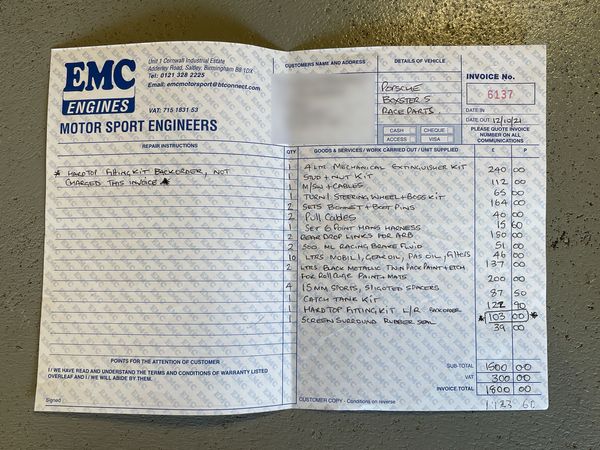 EMC
ENGINES
MOTOR SPORT ENGINEERS
Unit 1 Cornwall Industrial Estate
Adderley Road, Saltley, Birmingham B8 1DX
Tel: 0121 328 2225
Email: emcmotorsport@btconnect.com
VAT: 715 1831 53
CUSTOMERS NAME AND ADDRESS
DETAILS OF VEHICLE
PORSCHE
BOXSTER S
RACE PARTS.
CASH CHEQUE
ACCESS VISA
INVOICE No.
6137
DATE IN
DATE OUT 12/10/21
PLEASE QUOTE INVOICE
NUMBER ON ALL
COMMUNICATIONS
REPAIR INSTRUCTIONS
* HARDTOP FITTING KIT BACKORDER, NOT
CHARGED THIS INVOICE *
QTY GOODS & SERVICES / WORK CARRIED OUT / UNIT SUPPLIED £ P
4 LTR MECHANICAL EXTINGUISHER KIT 240 00
STUD + NUT KIT 112 00
1 M/SW + CABLES 65 00
1 TURN 1 STEERING WHEEL + BOSS KIT 164 00
2 SETS BONNET + BOOT PINS 46 00
2 Pull Cables 15 60
1 SET 6 POINT HARNESS 150 00
2 REAR DROP LINKS FOR ARB 51 00
2 500 ML RACING BRAKE FLUID 46 00
10 LTRS MOBIL 1, GEAR OIL, PAS OIL, FILTERS 137 00
2 LTRS BLACK METALLIC THIN PACK PAINT + ETCH
FOR Roll Cage PAINT + MATS 200 00
4 15MM SPORTS, SLOTTED SPACERS 87 50
1 CATCH TANK KIT 122 90
1 HARDTOP FITTING KIT L/R BACKORDER * 103 00 *
1 SCREEN SURROUND RUBBER SEAL 39 00
POINTS FOR THE ATTENTION OF CUSTOMER
I / WE HAVE READ AND UNDERSTAND THE TERMS AND CONDITIONS OF WARRANTY LISTED
OVERLEAF AND I / WE WILL ABIDE BY THEM.
Signed
SUB-TOTAL 1500 00
VAT 300 00
INVOICE TOTAL 1800 00
CUSTOMER COPY - Conditions on reverse